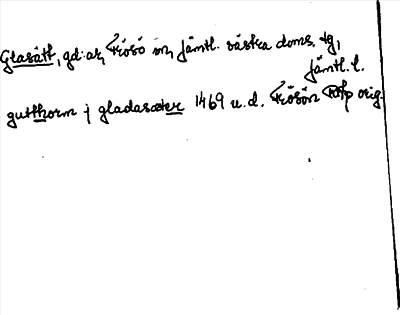 Glasätt, gd:ar, Frösö sn, Jämtl. västra doms. tg,
Jämtl. l.
gutthorm j gladasæter 1469 u.d. Frösön RAp orig.